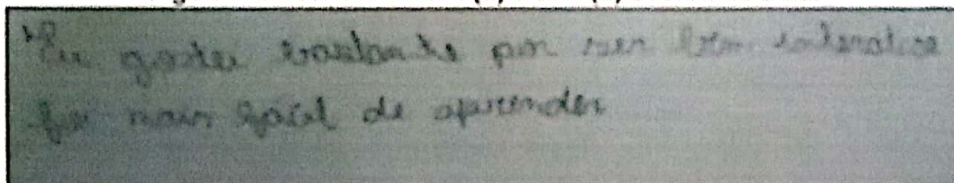 Eu gostei bastante por ser bem interativo
foi mais fácil de aprender